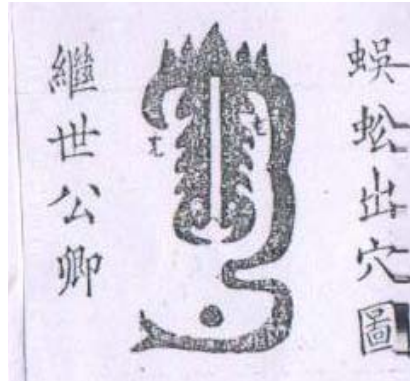 蜈蚣出穴圖
繼世公卿